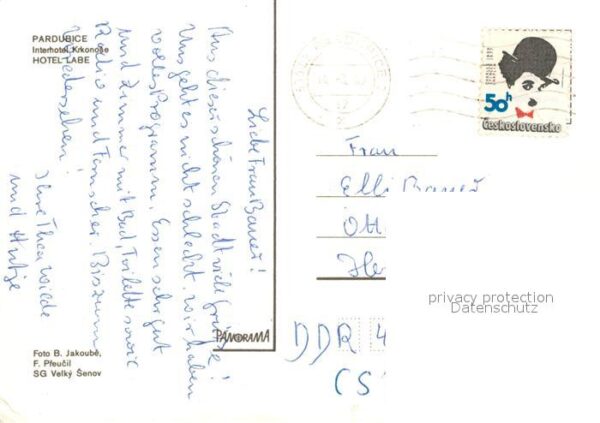 PARDUBICE
Interhotel Krkonoše
HOTEL LABE
Liebe Frau Bauer!
Aus dieser schönen Stadt viele Grüsse!
Uns geht es nicht schlecht. wir haben
volles Programm. Essen sehr gut
und Zimmer mit Bad, Toilette sowie
Radio und Fernseher. Bis zum
Wiedersehen!
Ihre Thea Wilde
und
Foto B. Jakoubě,
F. Přeučil
SG Velký Šenov
PANORAMA
50h
Československo
Frau
Elli Bauer
Ott
DDR 4
(S
privacy protection
Datenschutz